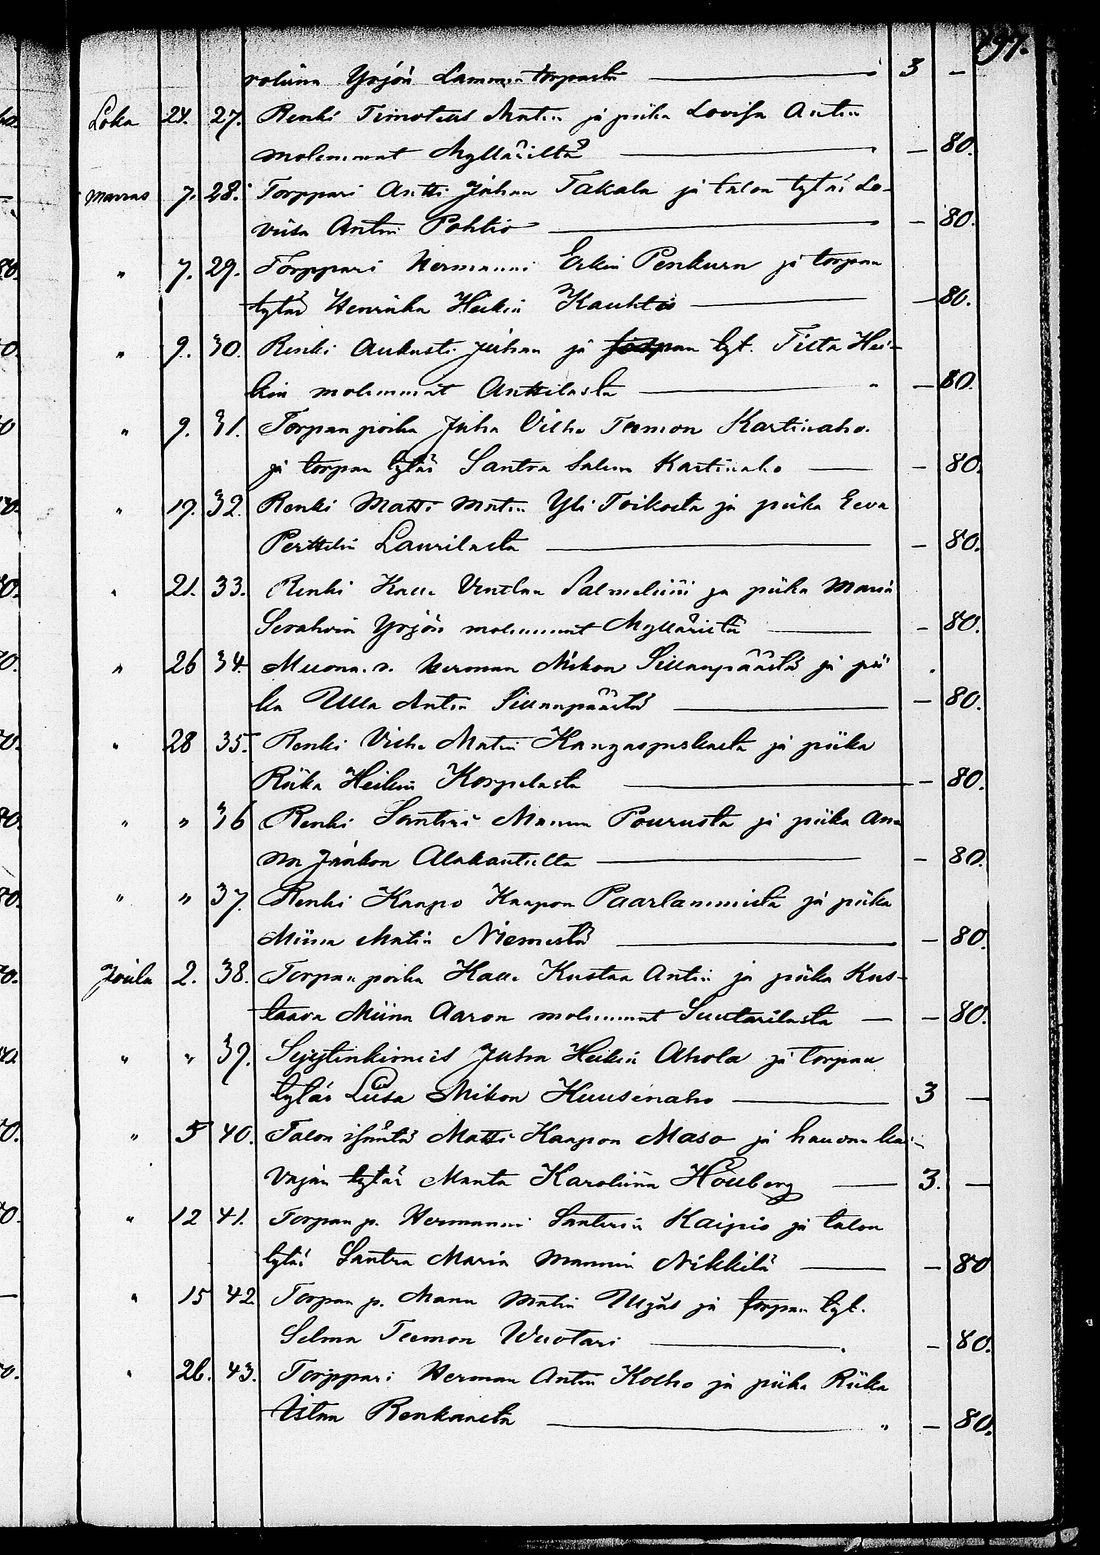 197.
roliina Yrjön Lammentorpasta 3 —
Loka 24. 27. Renki Timoteus Matin ja piika Lovisa Antin
molemmat Mylläriltä — 80.
Marras 7. 28. Torppari Antti Juhan Takala ja talon tytär Lo-
viisa Antin Pohtio — 80.
" 7. 29. Torppari Hermanni Erkin Penkurn ja torpan
tytär Henrika Heikin Kauhtio — 80.
" 9. 30. Renki Aukusti Juhan ja torpan tyt. Fiita Hei-
kin molemmat Anttilasta — 80.
" 9. 31. Torpan poika Juha Vilho Teemon Kartinaho
ja torpan tytär Santra Salum Kartinaho — 80.
" 19. 32. Renki Matti Matin Yli Toikosta ja piika Eeva
Perttelin Laurilasta — 80.
" 21. 33. Renki Kalle Ventlan Salmeliini ja piika Maria
Serahvia Yrjön molemmat Mylläristä — 80.
" 26 34. Muona.r. Herman Mikon Sillanpäästä ja pii
ka Ulla Antin Sillanpäästä — 80.
" 28 35. Renki Vilho Matin Kangaspuskasta ja piika
Riika Heikin Korpelasta — 80.
" " 36 Renki Santeri Mannun Pourusta ja piika An
na Jaakon Alakauttilta — 80.
" " 37. Renki Kaapo Kaapon Paarlammista ja piika
Miina Matin Niemestä — 80.
Joulu 2. 38. Torpan poika Kalle Kustaa Antin ja piika Kus-
taava Miina Aaron molemmat Suutarilasta — 80.
" " 39. Syytinkimies Juha Heikin Ahola ja torpan
tytär Liisa Mikon Kuusenaho 3 —
" 5 40. Talon isäntä Matti Kaapon Maso ja haudan kai-
vajan tytär Manta Karoliina Höuberg 3. —
" 12 41. Torpan p. Hermanni Santerin Kaipio ja talon
tytär Santra Maria Mannin Nikkilä — 80
" 15 42 Torpan p. Manu Matin ja torpan tyt.
Selma Teemon Wuotari — 80.
" 26. 43. Torppari Herman Antin Kolho ja piika Riika
Renkaasta — 80.